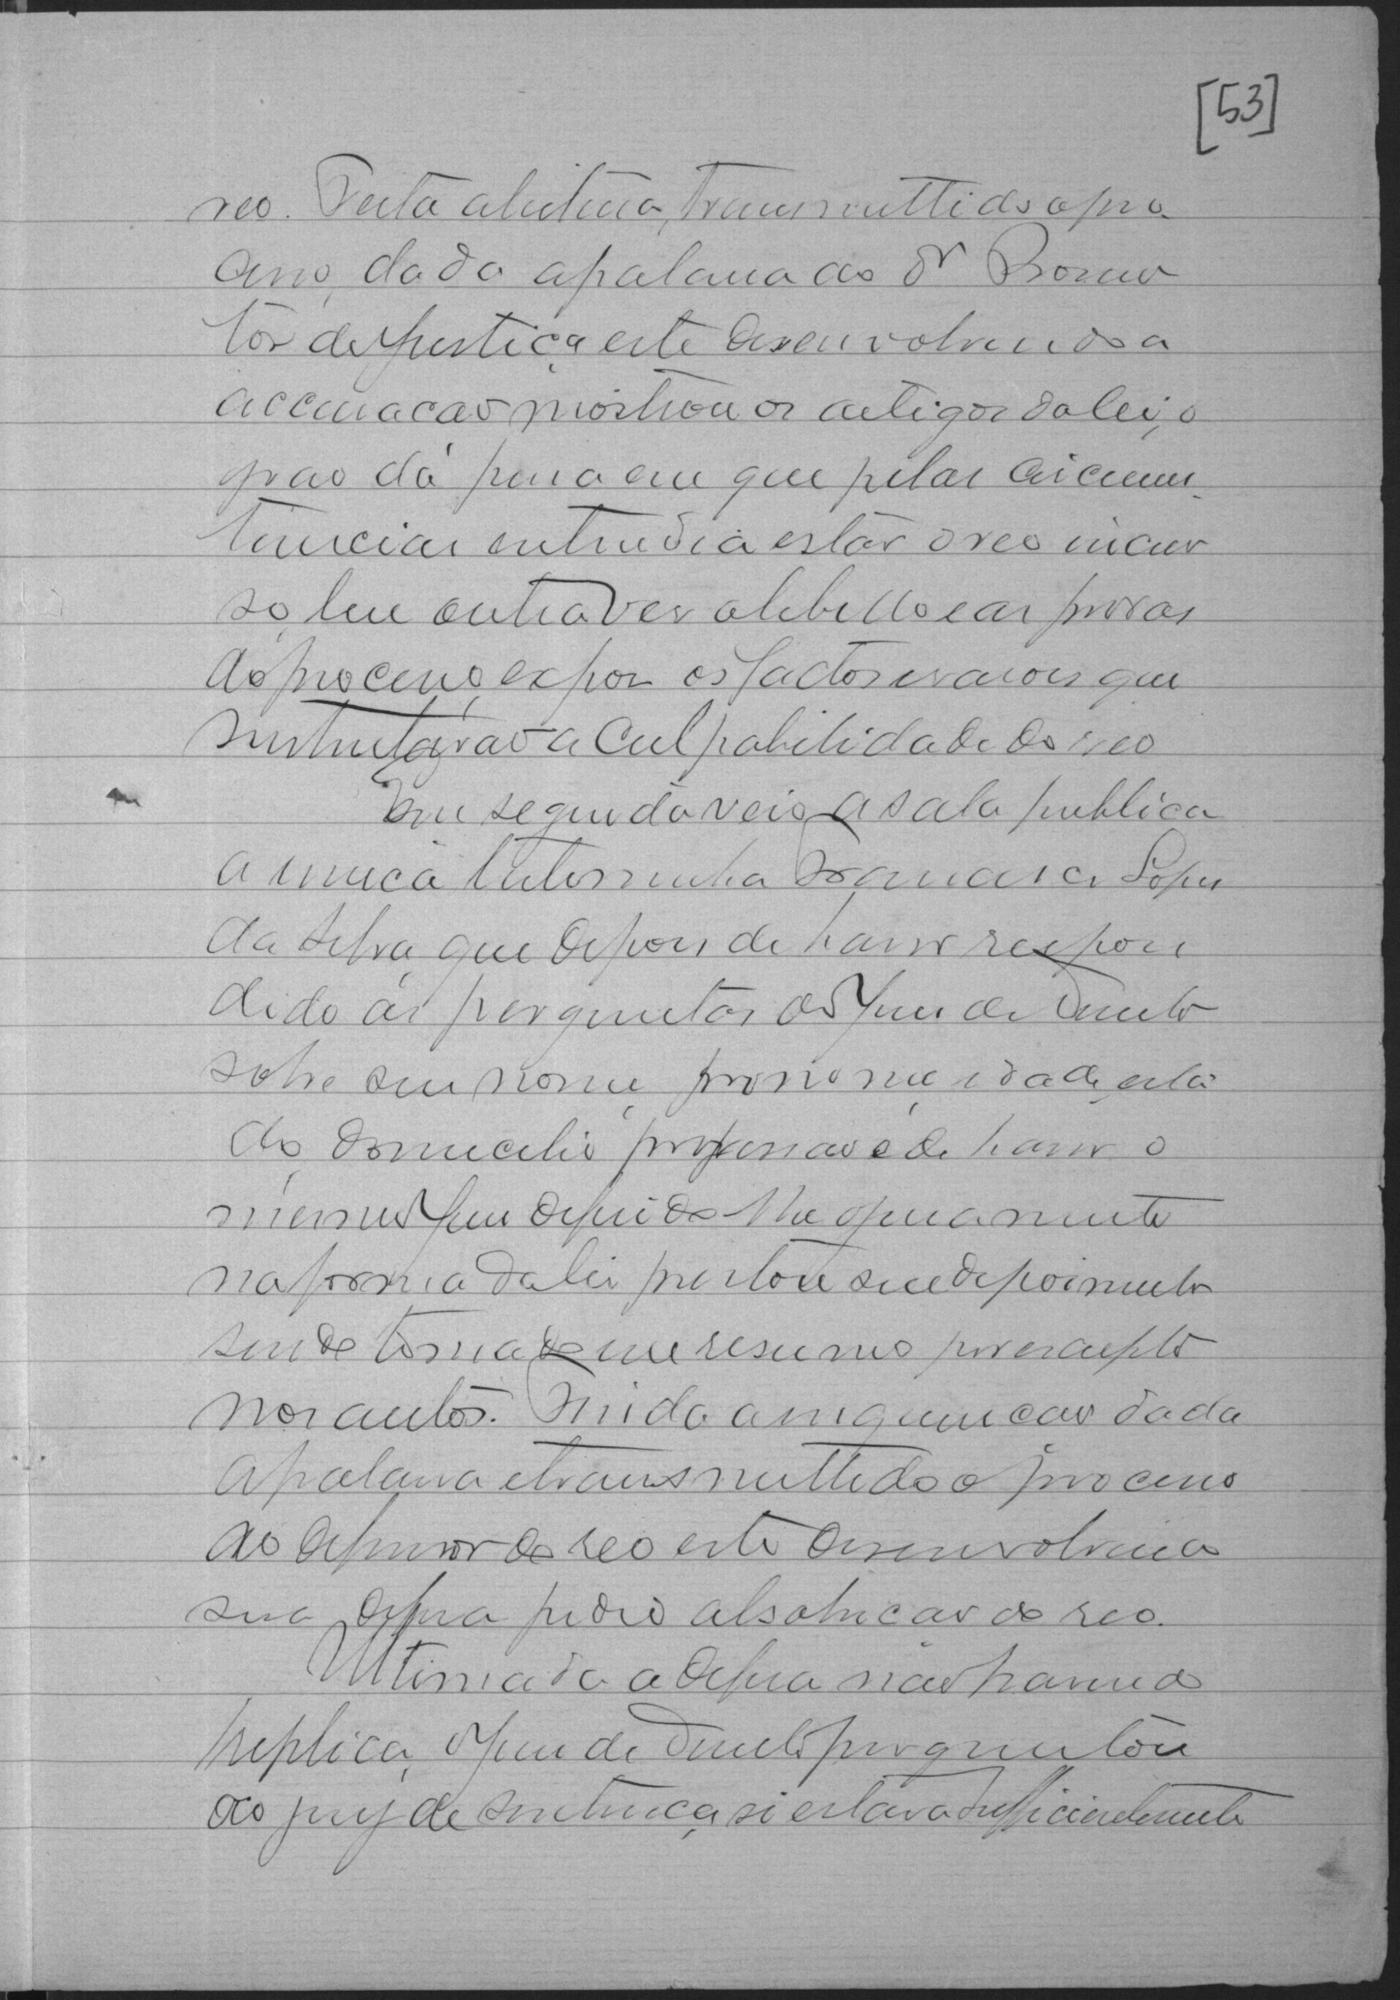 [53]
reo. Feita a leitura, transmittido o pro
cesso, dada a palavra ao Dr Promo
tor de Justiça este desenvolvendo a
accusacao mostrou os artigos da lei, o
grao da pena em que pelas circums
tancias entendia estar o reo incur
so, leu outra vez o libello e as provas
do processo, expoz os factos e rasoes que
sustentavão a culpabilidade do reo
Em seguida veio a sala publica
a unica testemunha Francisca Lopes
da Silva, que depois de haver respon
dido ás perguntas do Juiz de Direito
sobre seu nome, pronome, idade, esta
do, domicilio, profissao e de haver o
mesmo Juiz deferido-lhe o juramento
na forma da lei prestou seu depoimento
sendo tomado em resumo por escripto
nos autos. Finda a inquiricao dada
a palavra e transmittido o processo
ao defensor do reo este desenvolvendo
sua defesa pedio absolvicao do reo.
Ultimada a defesa não havendo
replica, o Juiz de Direito perguntou
ao jury de sentença si estava sufficientemente